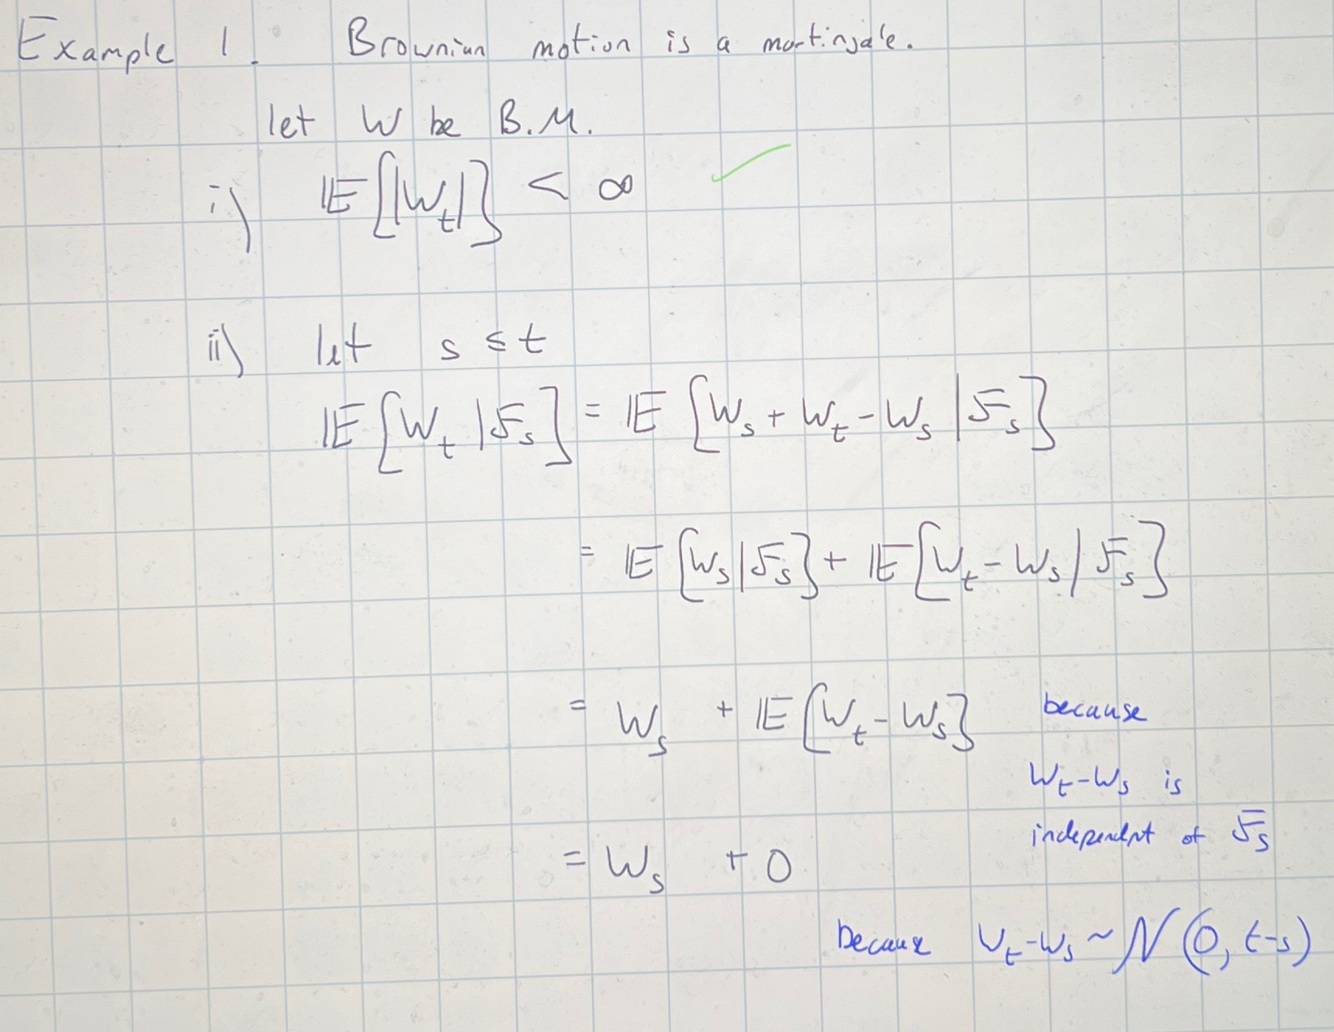 Example 1. Brownian motion is a martingale.
let W be B.M.
i) 𝔼[|W_t|] < ∞ ✓
ii) let s ≤ t
𝔼[W_t | ℱ_s] = 𝔼[W_s + W_t - W_s | ℱ_s]
= 𝔼[W_s | ℱ_s] + 𝔼[W_t - W_s | ℱ_s]
= W_s + 𝔼[W_t - W_s] because
W_t - W_s is
independent of ℱ_s
= W_s + 0
because W_t - W_s ~ N(0, t-s)